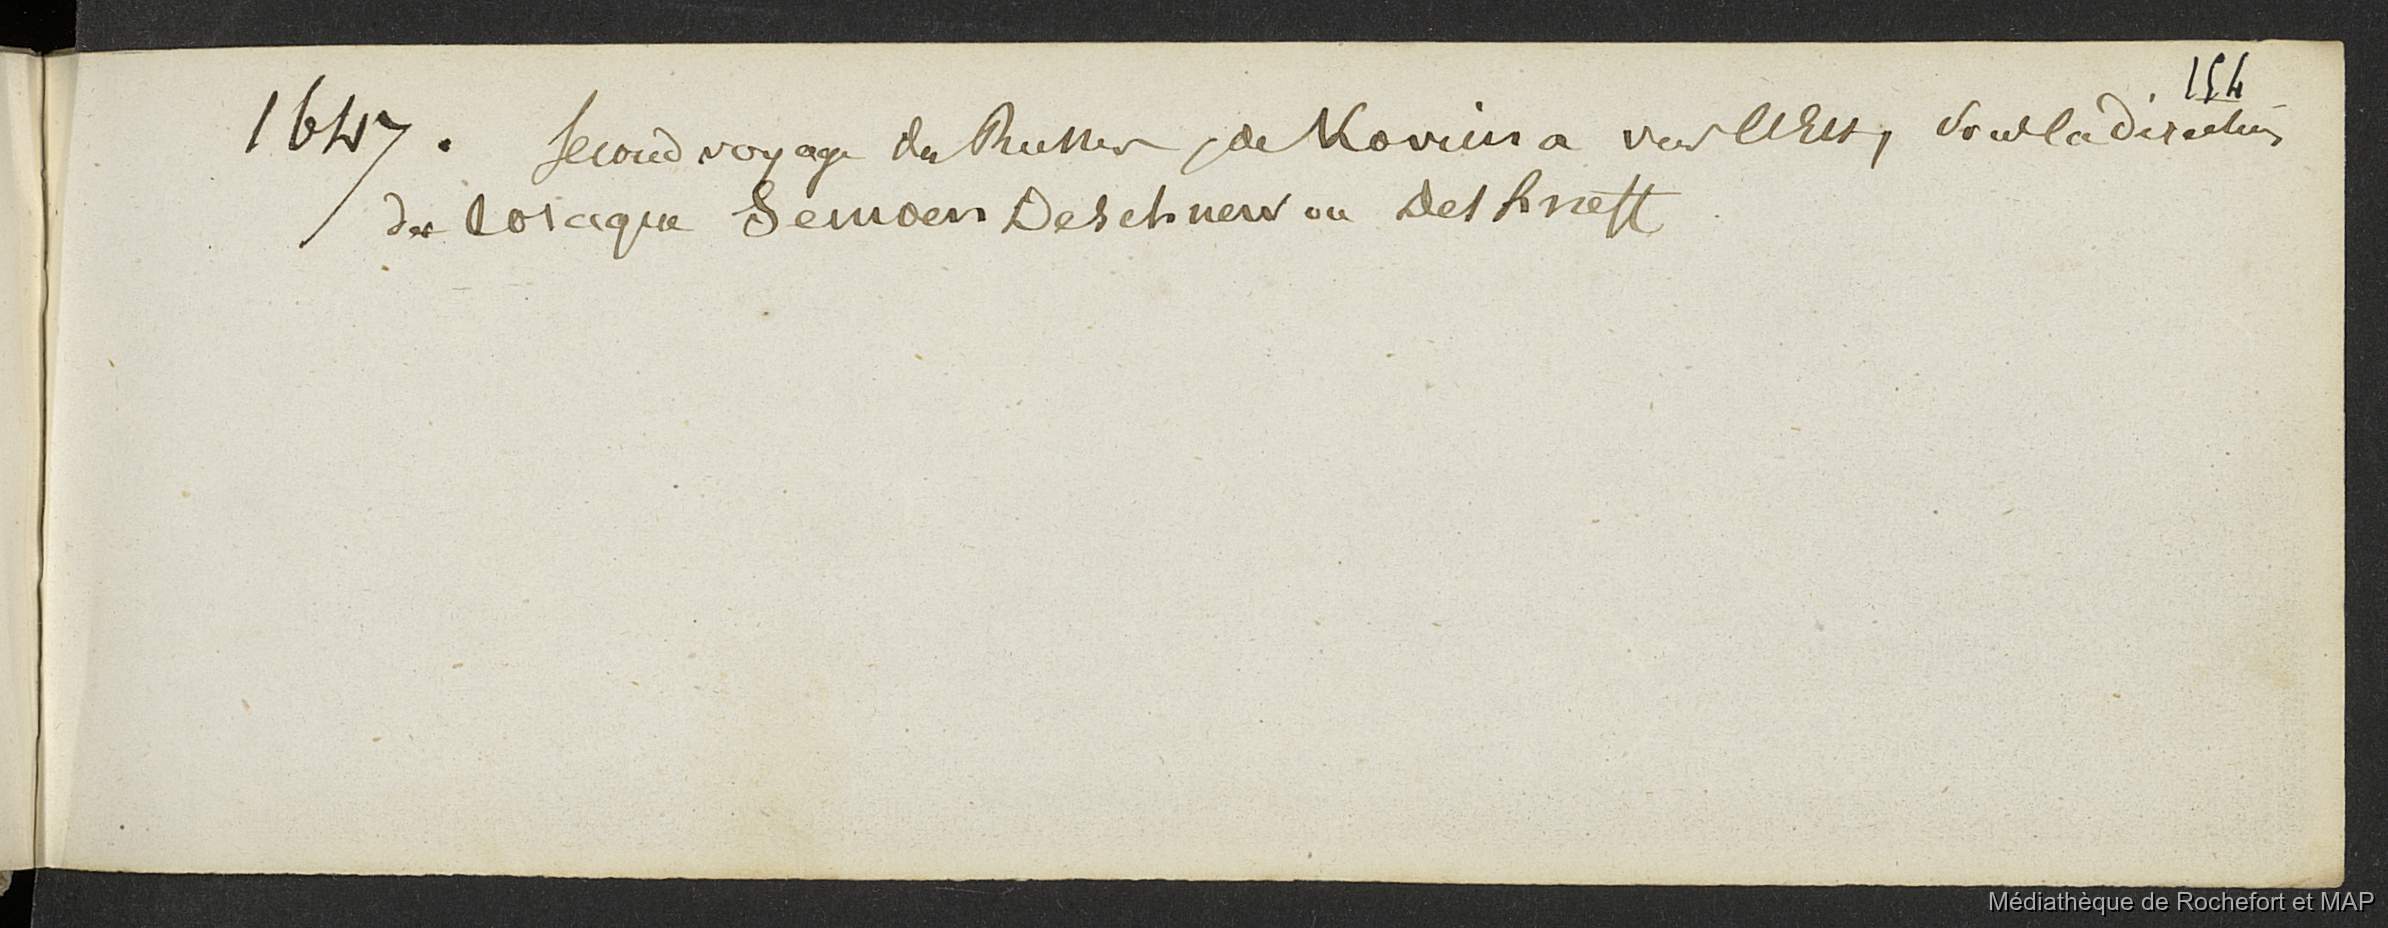 154
1647. Second voyage des Russes, de Kovima vers l'Est, sous la direction
du Cosaque Semoen Deschnew ou Deshneff
Médiathèque de Rochefort et MAP